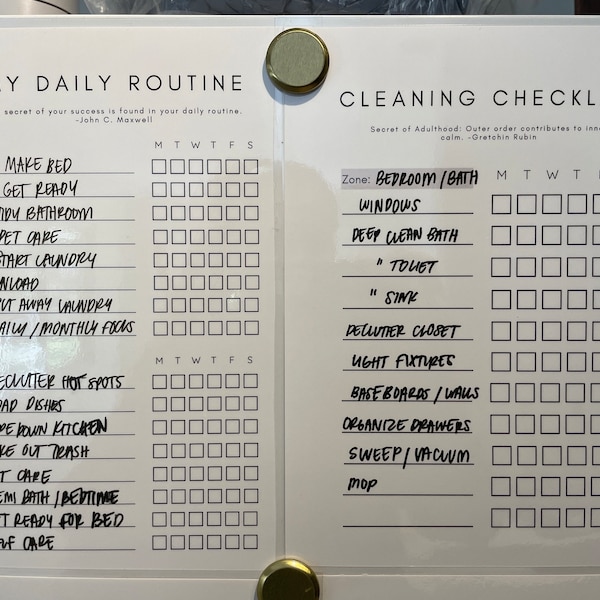 Y DAILY ROUTINE
secret of your success is found in your daily routine.
-John C. Maxwell
M T W T F S
MAKE BED
GET READY
IDY BATHROOM
PET CARE
TART LAUNDRY
NLOAD
UT AWAY LAUNDRY
AILY / MONTHLY FOCUS
M T W T F S
ECLUTTER HOT SPOTS
OAD DISHES
PE DOWN KITCHEN
KE OUT TRASH
T CARE
EMI BATH / BEDTIME
T READY FOR BED
LF CARE
CLEANING CHECKL
Secret of Adulthood: Outer order contributes to inn
calm. -Gretchin Rubin
Zone: BEDROOM / BATH
M T W T
WINDOWS
DEEP CLEAN BATH
" TOILET
" SINK
DECLUTTER CLOSET
LIGHT FIXTURES
BASEBOARDS / WALLS
ORGANIZE DRAWERS
SWEEP / VACUUM
MOP